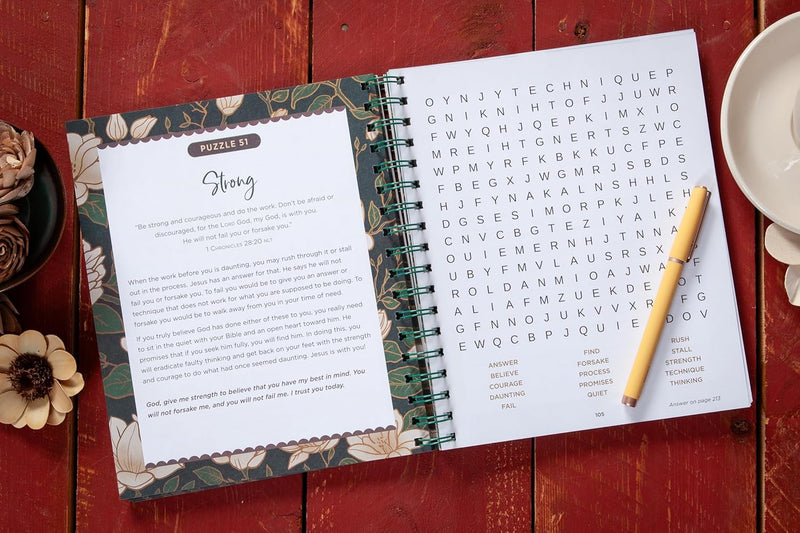 PUZZLE 51
Strong
"Be strong and courageous and do the work. Don't be afraid or
discouraged, for the LORD God, my God, is with you.
He will not fail you or forsake you."
1 CHRONICLES 28:20 NLT
When the work before you is daunting, you may rush through it or stall
out in the process. Jesus has an answer for that. He says he will not
fail you or forsake you. To fail you would be to give you an answer or
technique that does not work for what you are supposed to be doing. To
forsake you would be to walk away from you in your time of need.
If you truly believe God has done either of these to you, you really need
to sit in the quiet with your Bible and an open heart toward him. He
promises that if you seek him fully, you will find him. In doing this, you
will eradicate faulty thinking and get back on your feet with the strength
and courage to do what had once seemed daunting. Jesus is with you!
God, give me strength to believe that you have my best in mind. You
will not forsake me, and you will not fail me. I trust you today.
O Y N J Y T E C H N I Q U E P
G N I K N I H T O F J J U W R
F W Y Q H J Q E P K I M X I O
M R E I H T G N E R T S Z W C
W P M Y R F K B K K U C F P E
F B E G X J W G M R J S B D S
H J F Y N A K A L N S H H L S
D G S E S I M O R P K J L E
C N V C B G T E Z I Y A I K
O U I E M E R N H J T N N A
U B Y F M V L A U S R S X
R O L D A N M I O A J W A
A L I A F M Z U E K D E O T
G F N N O J U K V V X R F G
E W Q C B P J Q U I E D O V
ANSWER
BELIEVE
COURAGE
DAUNTING
FAIL
FIND
FORSAKE
PROCESS
PROMISES
QUIET
RUSH
STALL
STRENGTH
TECHNIQUE
THINKING
105
Answer on page 213